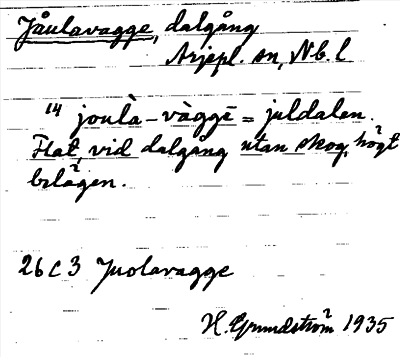 Jåulavagge, dalgång
Arjepl. sn, Nb. l
14 joulà - vàggē = juldalen.
Flat, vid dalgång utan skog, högt
belägen.
26 C 3 Juolavagge
H. Grundström 1935